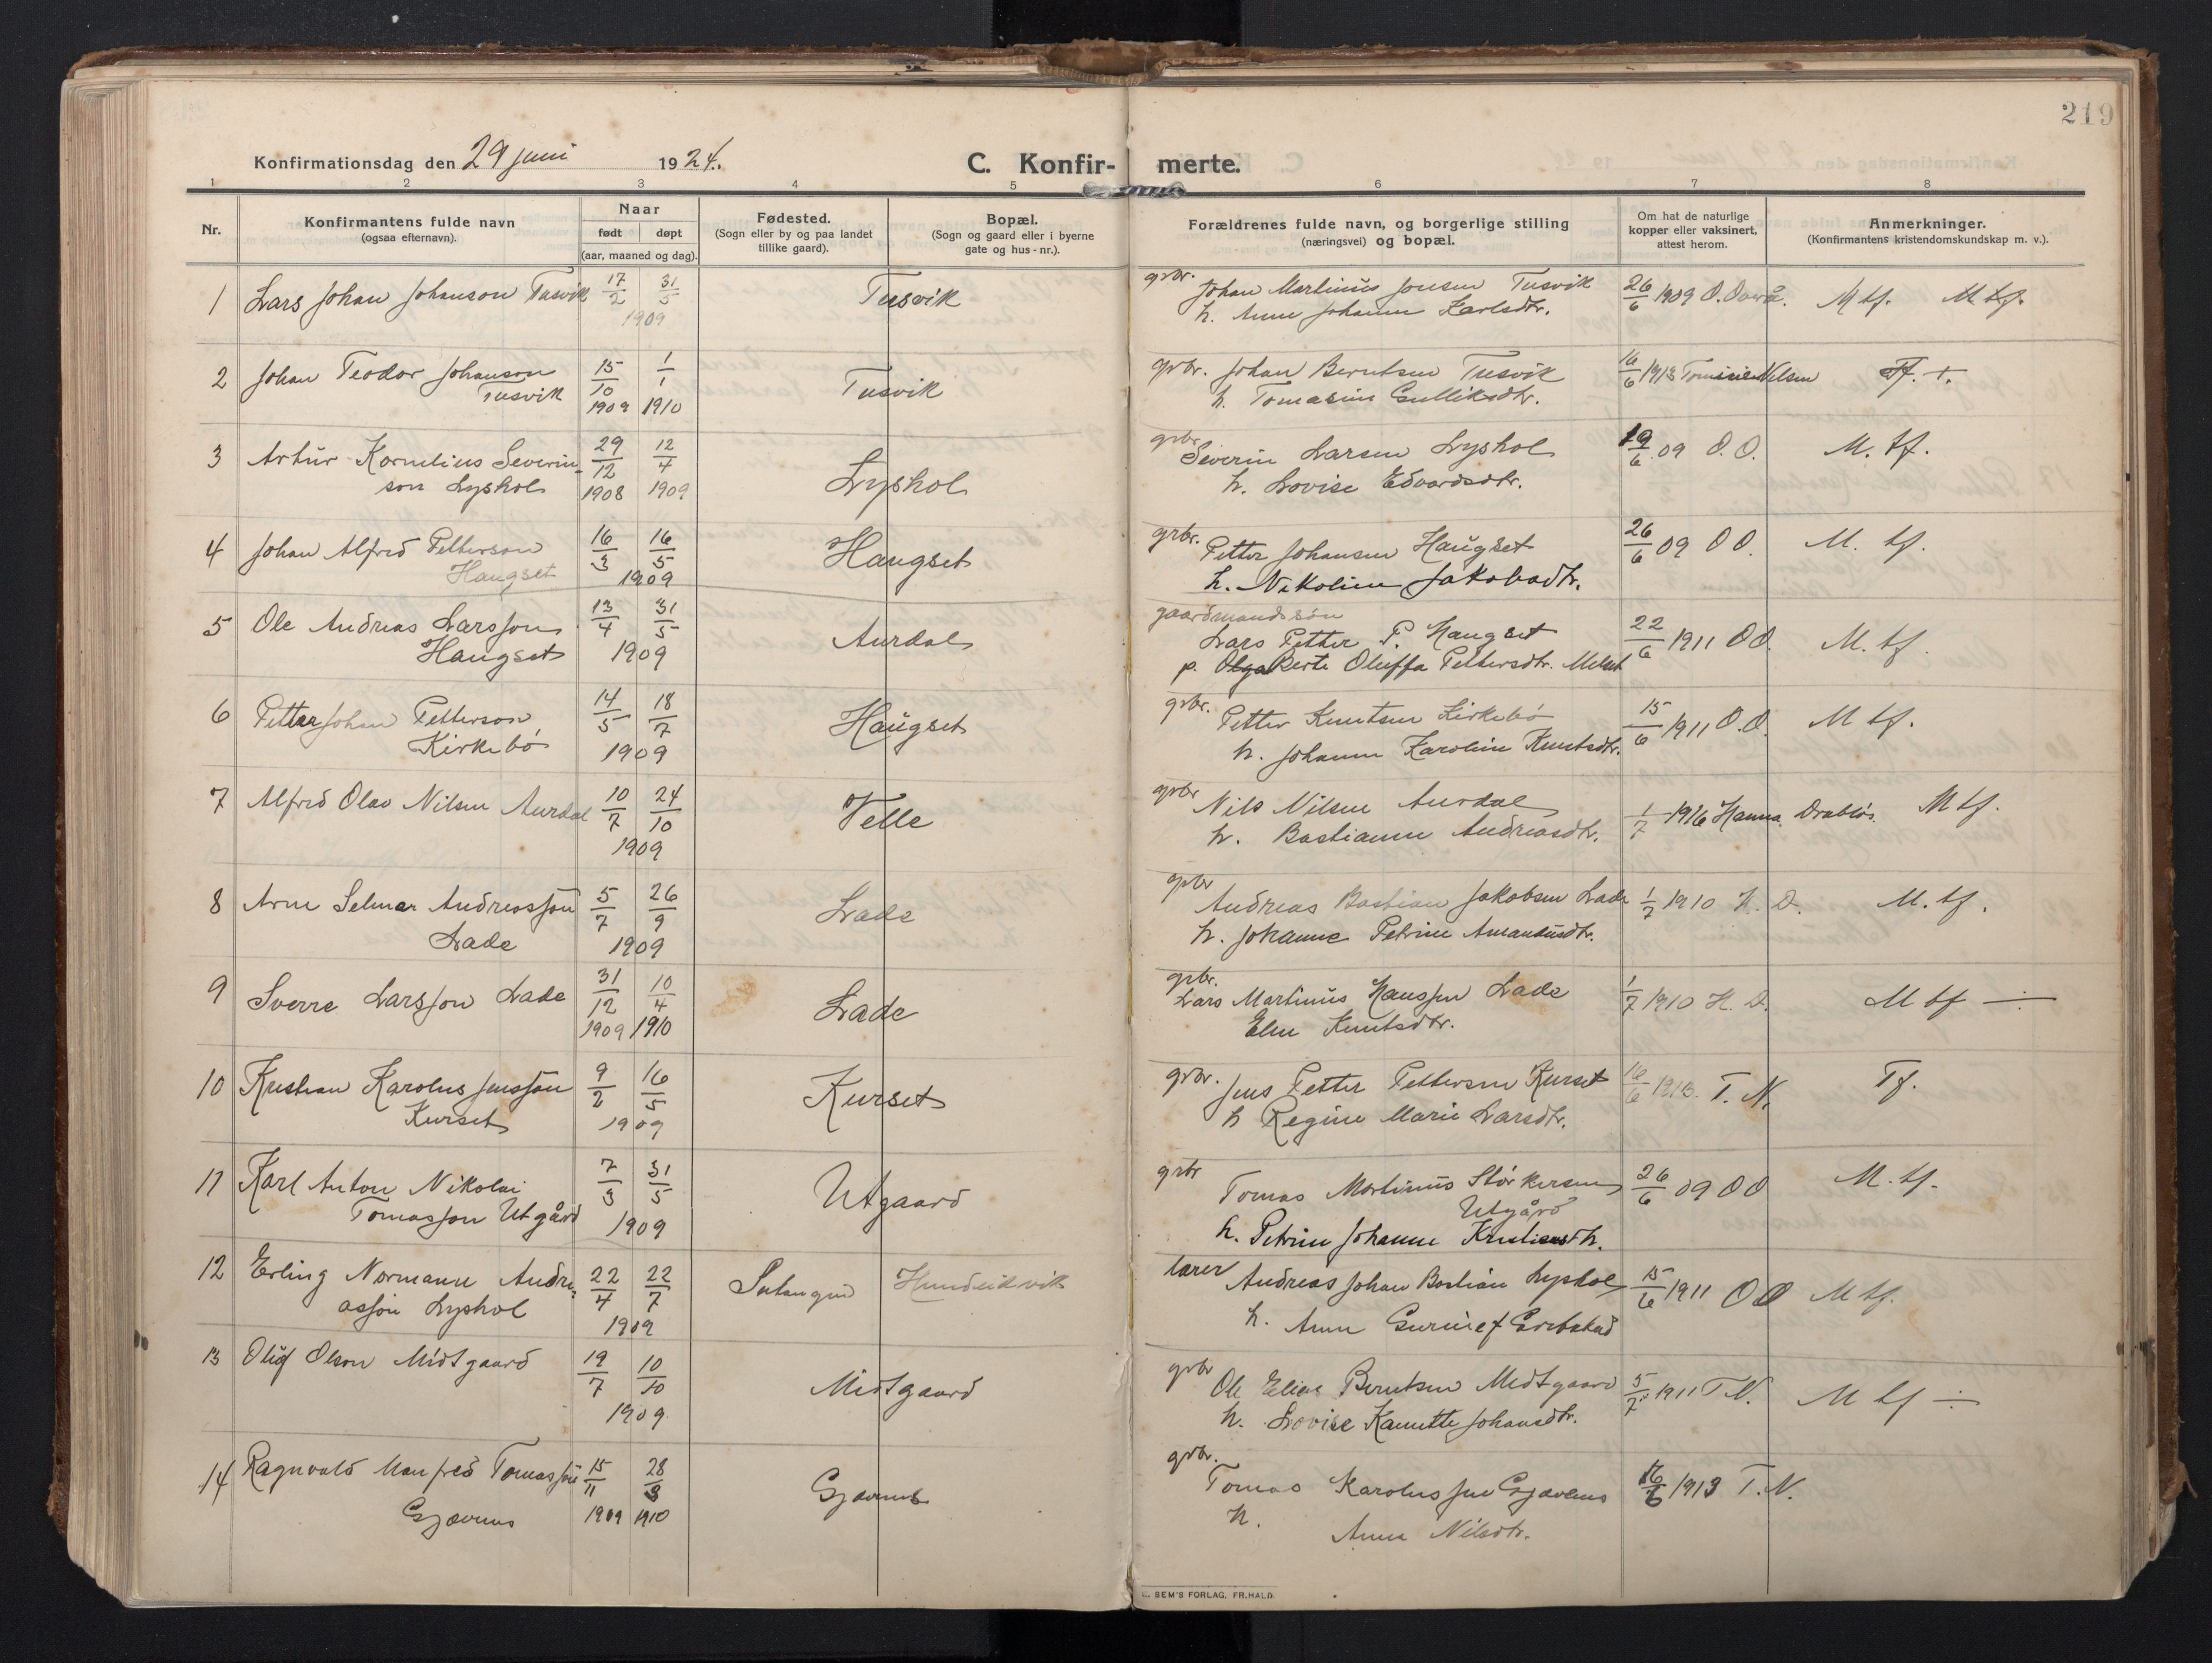 219
Konfirmationsdag den 29 juni 1924.
C. Konfir- merte.
1 2 3 4 5 6 7 8
Nr.
Konfirmantens fulde navn
(ogsaa efternavn).
Naar
født døpt
(aar, maaned og dag).
Fødested.
(Sogn eller by og paa landet
tillike gaard).
Bopæl.
(Sogn og gaard eller i byerne
gate og hus-nr.).
Forældrenes fulde navn, og borgerlige stilling
(næringsvei) og bopæl.
Om hat de naturlige
kopper eller vaksinert,
attest herom.
Anmerkninger.
(Konfirmantens kristendomskundskap m. v.).
1 Lars Johan Johanson Tusvik 17/2 31/5 Tusvik grbr. Johan Martinus Jonsen Tusvik 26/6 1909 O. M tf. M. tf.
1909 h. Anne Johanne Karlsdtr.
2 Johan Teodor Johanson 15/10 1/1 Tusvik grbr. Johan Berntsen Tusvik 16/6 1913 Nilsen Tf. +.
Tusvik 1909 1910 h. Tomasine Gulliksdtr.
3 Artur Kornelius Severin- 29/12 12/4 Lyshol grbr. Severin Larsen Lyshol 19/6 09 O.O. M. tf.
son Lyshol 1908 1909 h. Lovise Edvardsdtr.
4 Johan Alfred Petterson 16/3 16/5 Haugset grbr. Petter Johansen Haugset 26/6 09 O O. M. tf.
Haugset 1909 h. Nikoline Jakobsdtr.
5 Ole Andreas Larsson 13/4 31/5 Aurdal gaardmandssøn
Haugset 1909 Lars Petter P. Haugset 22/6 1911 O O. M. tf.
p. Olga Berte Oluffa Pettersdtr. Melset
6 Petter Johan Petterson 14/5 18/7 Haugset grbr. Petter Knutsen Kirkebø 15/6 1911 O.O. M tf.
Kirkebø 1909 h. Johanne Karoline Knutsdtr.
7 Alfred Olav Nilsen Aurdal 10/7 24/10 Velle grbr Nils Nilsen Aurdal 1/7 1916 Hanna Drabløs. M tf.
1909 h. Bastianne Andreasdtr.
8 Arne Selmer Andreasson 5/7 26/9 Lade grbr Andreas Bastian Jakobsen Lade 1/7 1910 H. D. M. tf.
Lade 1909 h. Johanne Petrine Amandusdtr.
9 Sverre Larsson Lade 31/12 10/4 Lade grbr. Lars Martinus Hanssen Lade 1/7 1910 H. D. M tf ÷
1909 1910 Elen Knutsdtr.
10 Kristian Karolus Jensson 9/2 16/5 Kurset grbr. Jens Petter Pettersen Kurset 16/6 1913. T. N. Tf.
Kurset 1909 h Regine Marie Larsdtr.
11 Karl Anton Nikolai 7/3 31/5 Utgaard grbr Tomas Martinus Størkersen 26/6 09 O O M. tf.
Tomasson Utgård 1909 Utgård
h. Petrine Johanne Kristiansdtr.
12 Erling Normann Andre- 22/4 22/7 Hundeidvik lærer Andreas Johan Bastian Lyshol 15/6 1911 O O M tf.
asson Lyshol 1909 h. Anne
13 Oluf Olson Midtgaard 19/7 10/10 Midtgaard grbr Ole Elias Berntsen Midtgaard 5/7 1911 T N. M tf ÷
1909 h. Lovise Kanutte Johansdtr.
14 Ragnvald Manfred Tomasson 15/11 28/3 Gjævenes grbr. Tomas Karolus Gjævenes 16/6 1913 T. N.
Gjævenes 1909 1910 h. Anna Nilsdtr.
SEM'S FORLAG, FR.HALD.